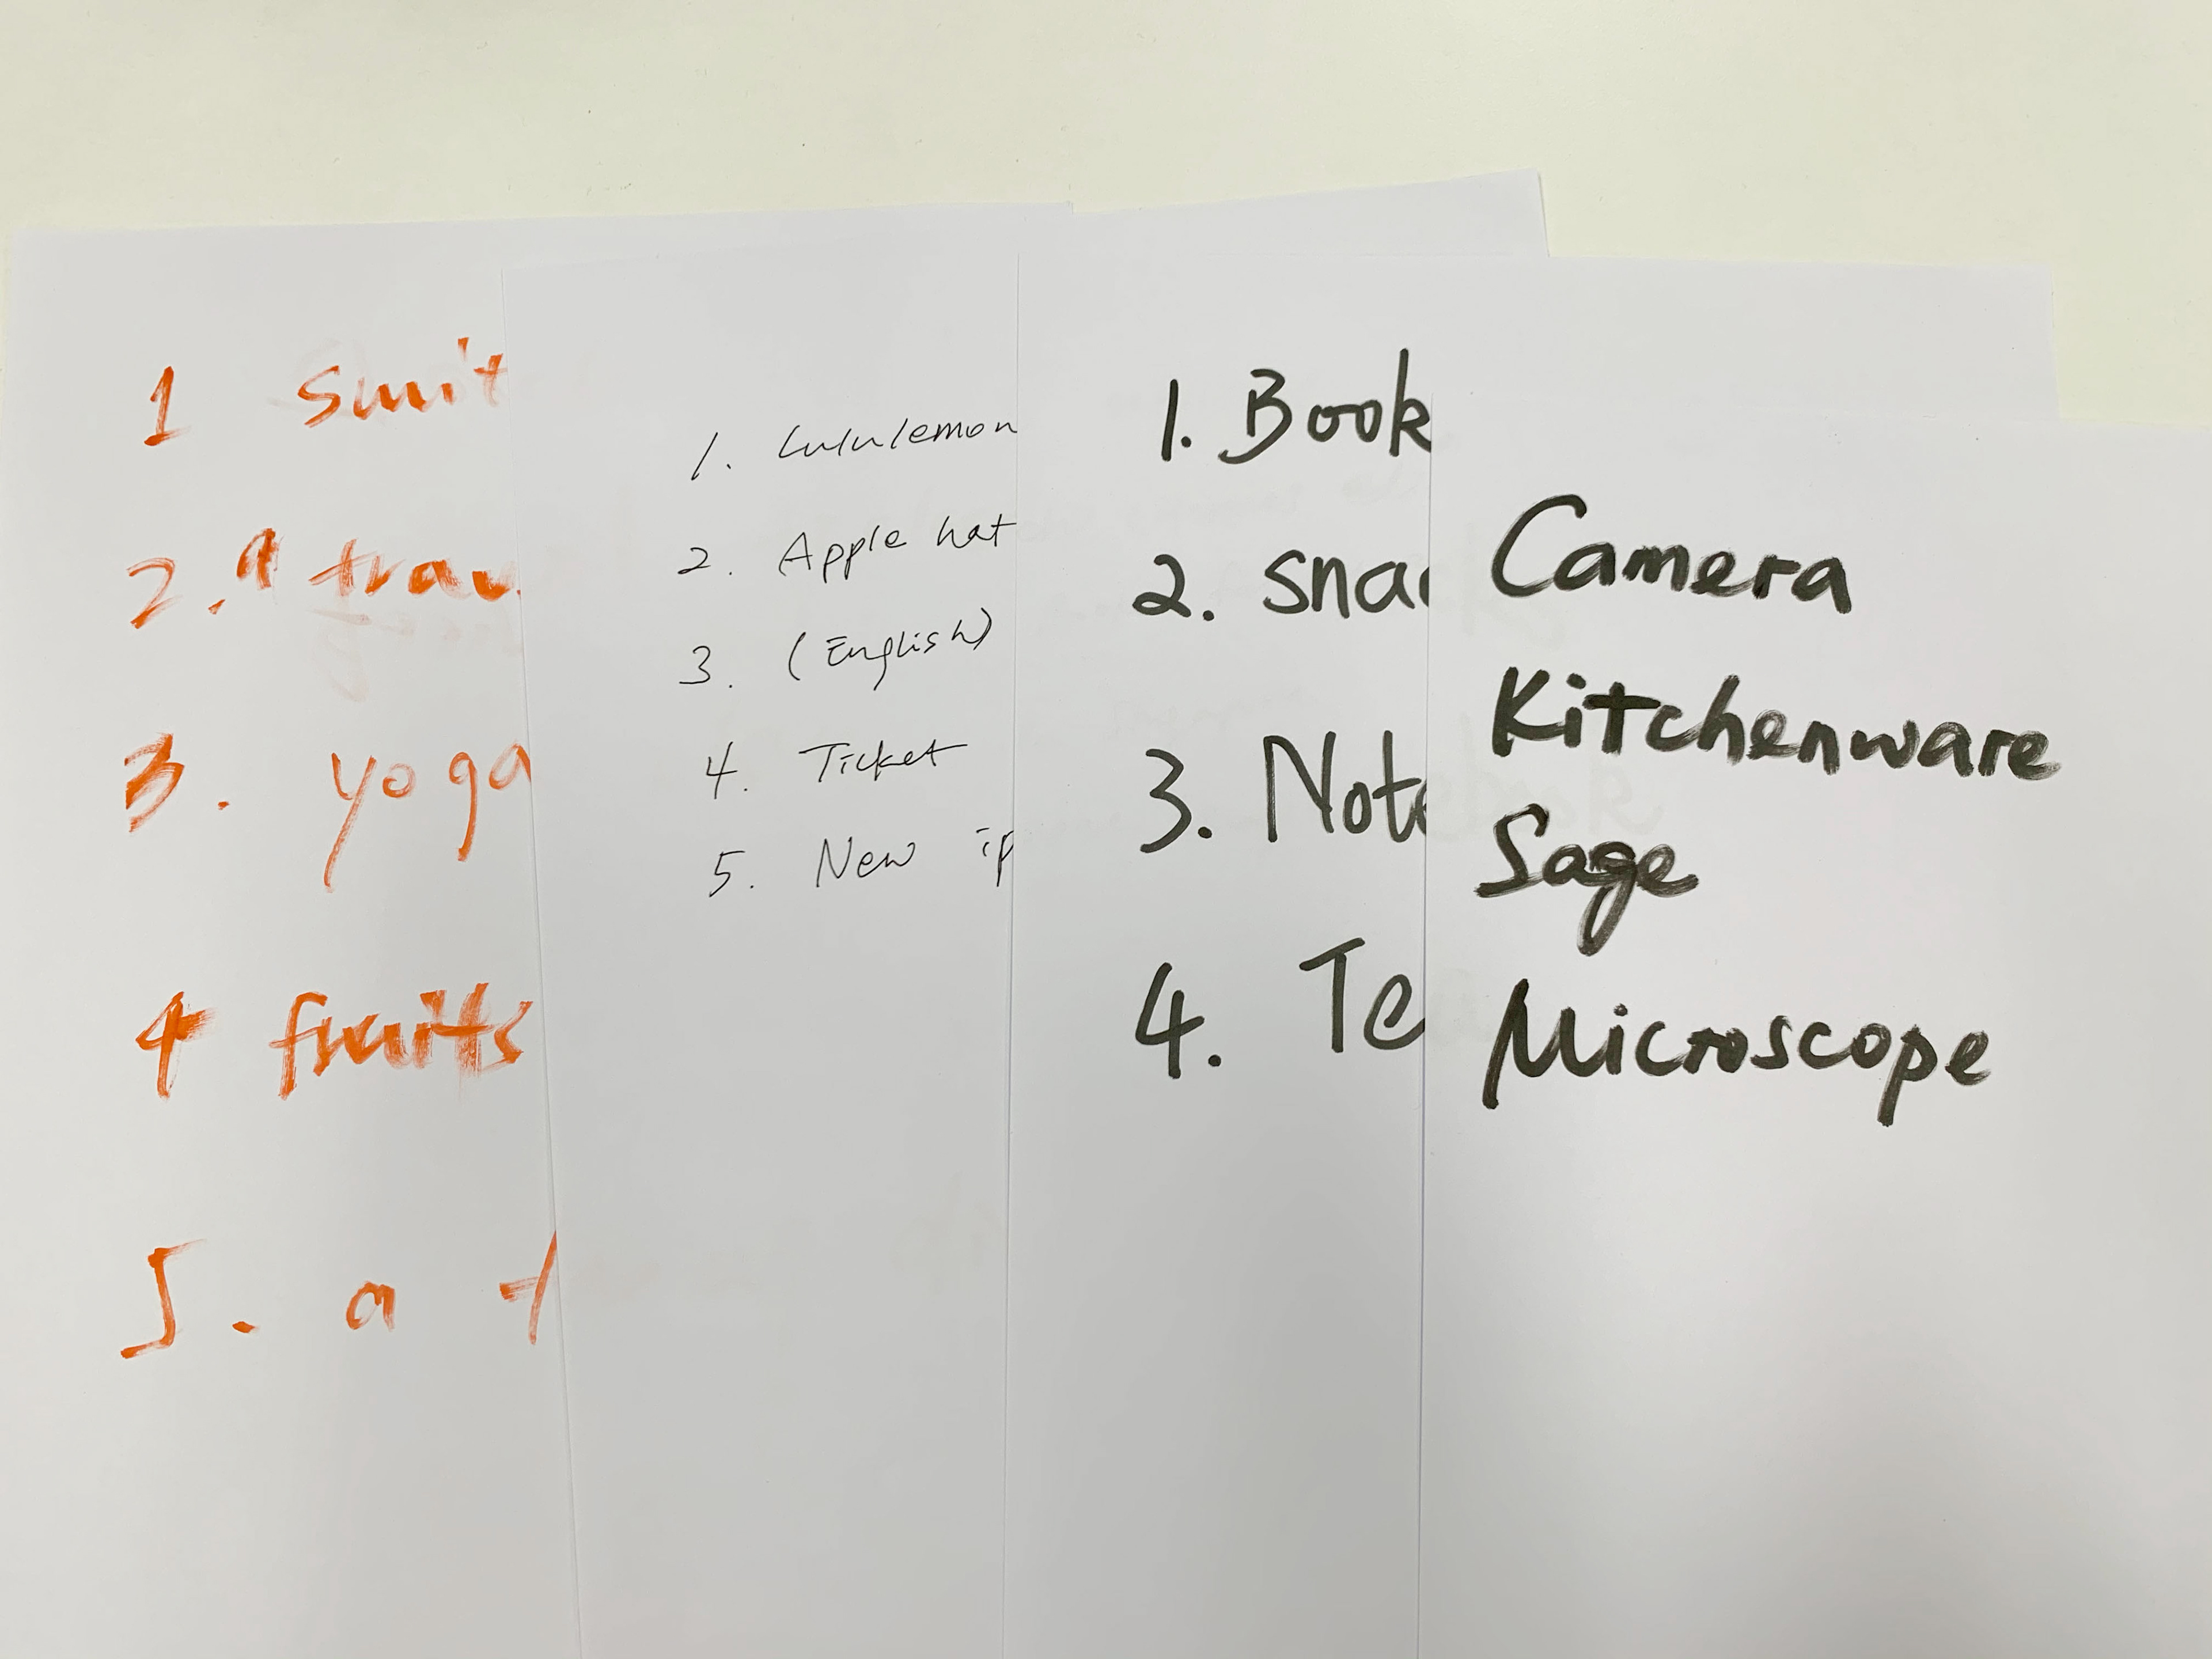 1
2. a
3. yoga
4 fruits
5. a
1. Lululemon
2. Apple hat
3. (English)
4. Ticket
5. New
1. Book
2.
3.
4.
Camera
Kitchenware
Sage
Microscope